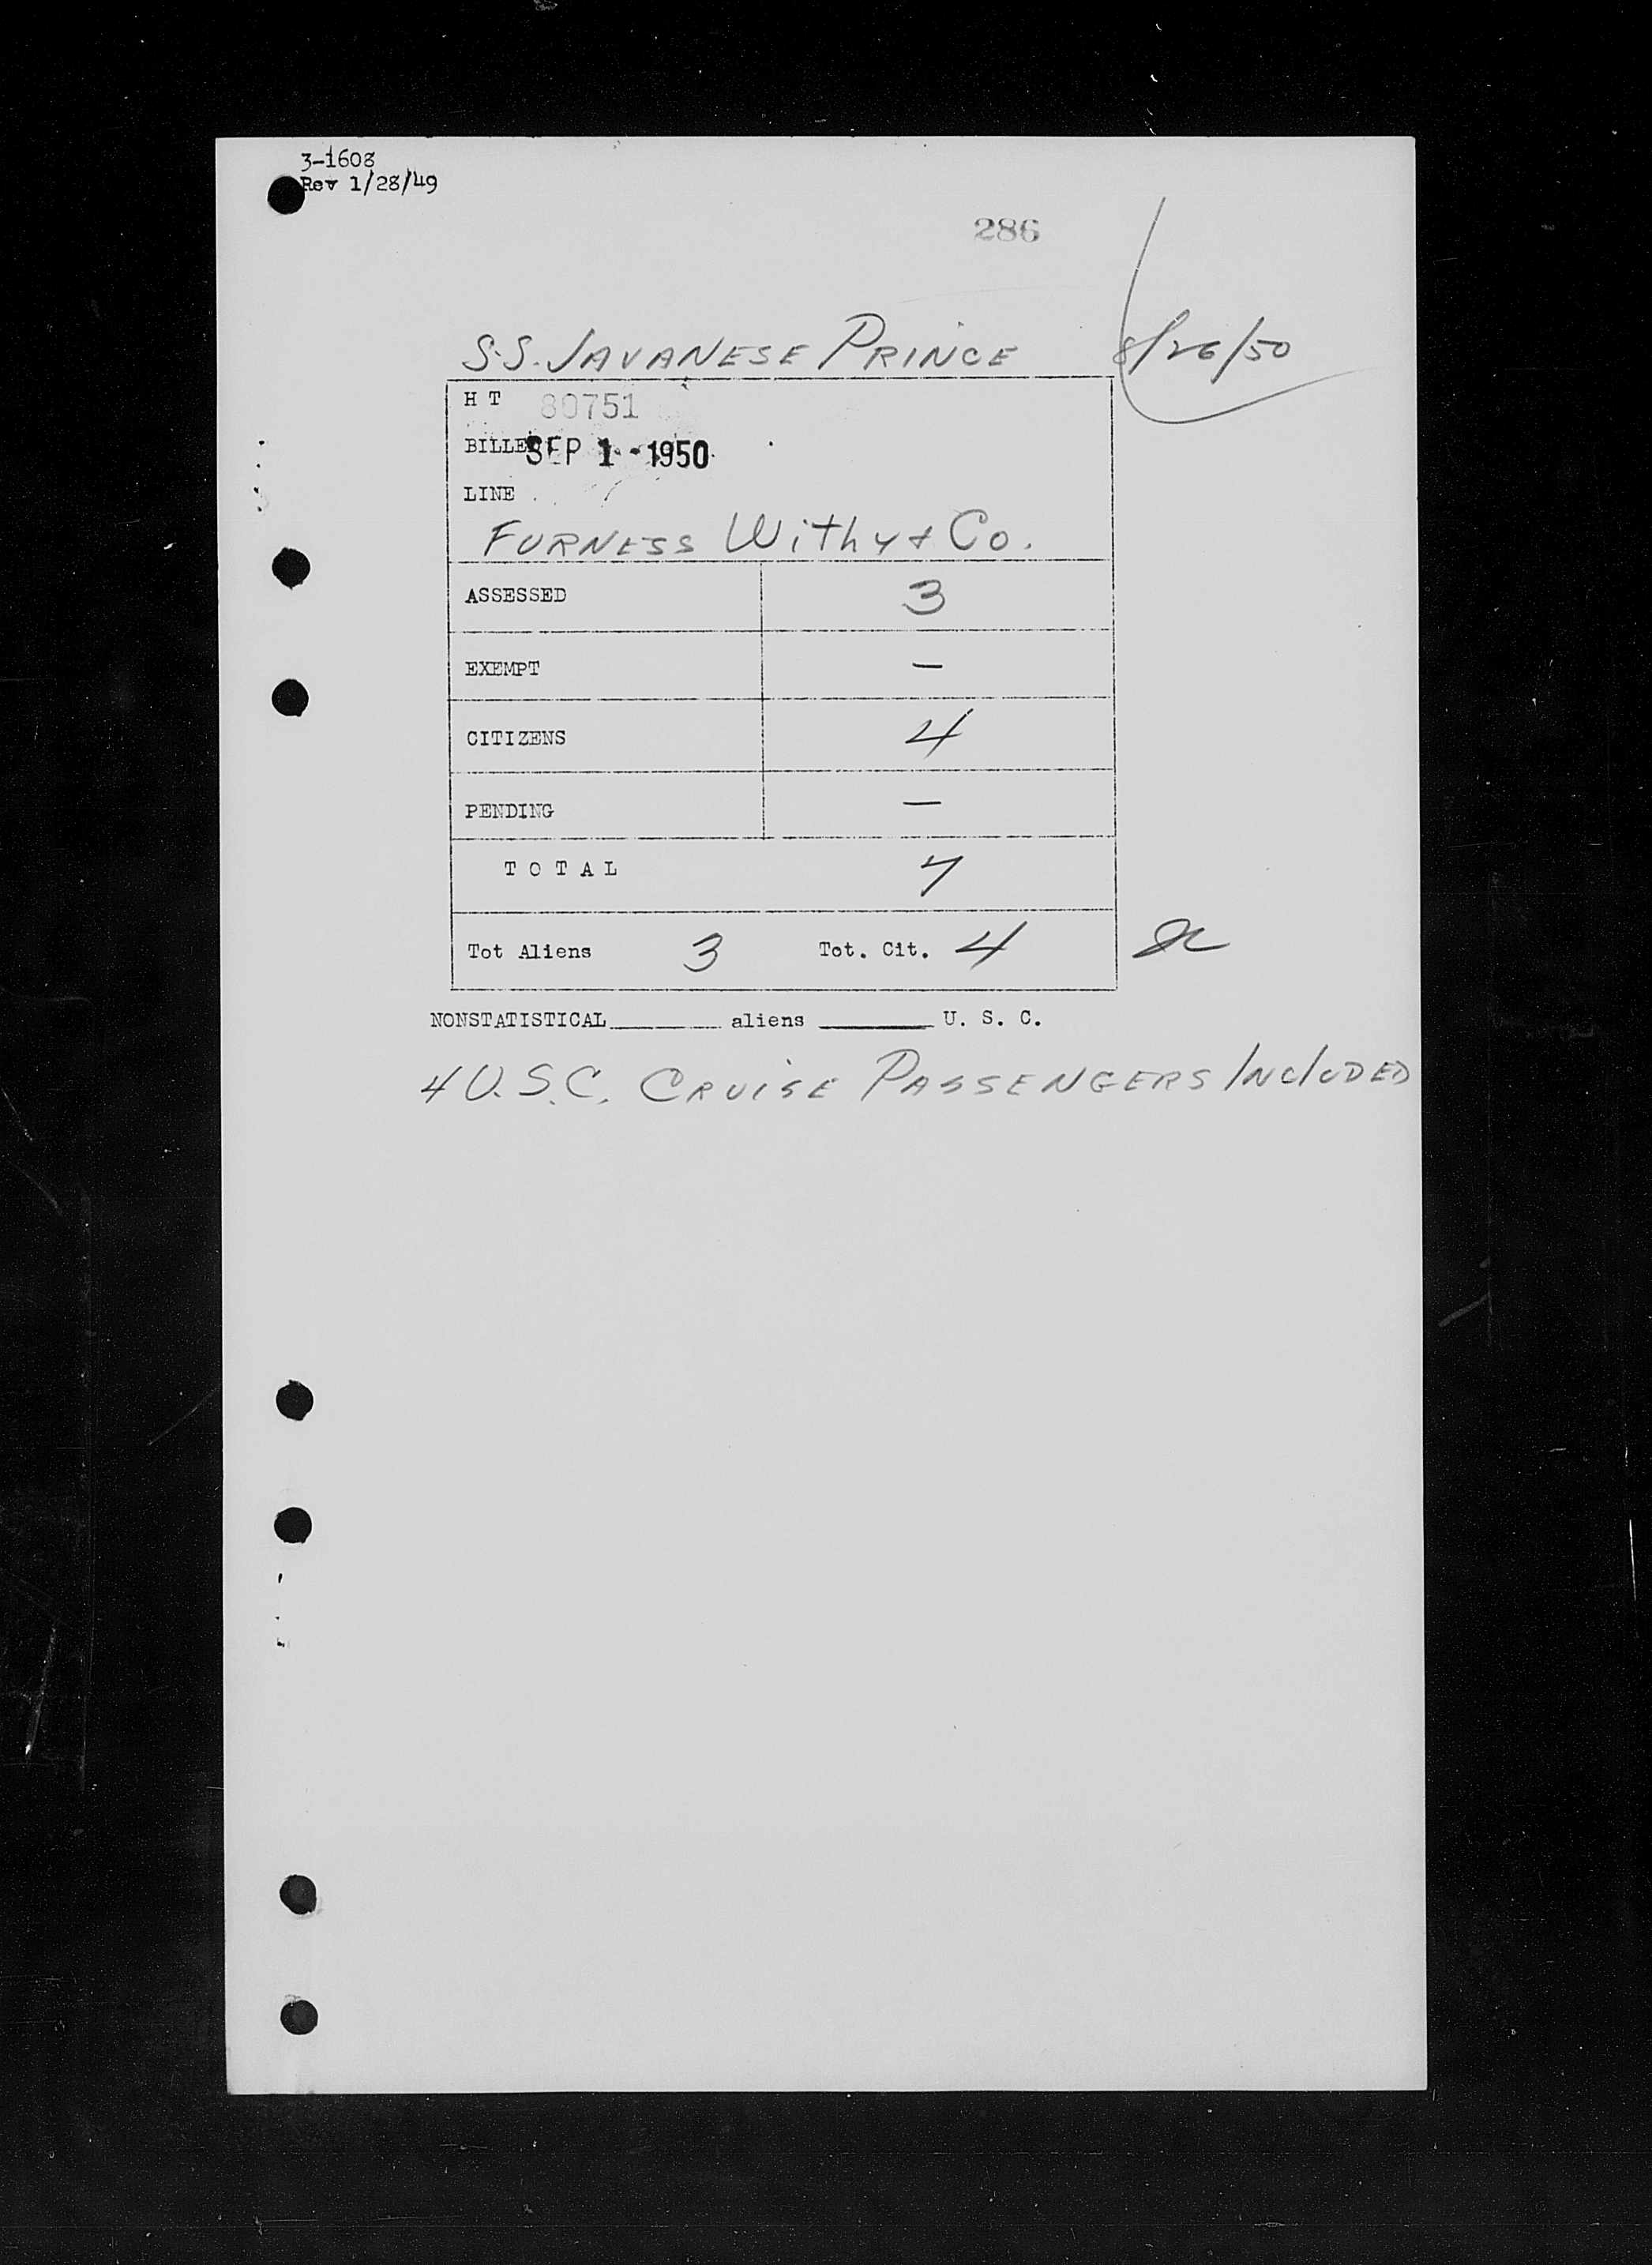 3-1608
Rev 1/28/49
286
S.S. JAVANESE PRINCE 8/26/50
H T 80751
BILLED SEP 1 - 1950
LINE
FURNESS Withy & Co.
ASSESSED 3
EXEMPT —
CITIZENS 4
PENDING —
T O T A L 7
Tot Aliens 3 Tot. Cit. 4
NONSTATISTICAL________ aliens ________ U. S. C.
4 U.S.C. CRUISE PASSENGERS INCLUDED